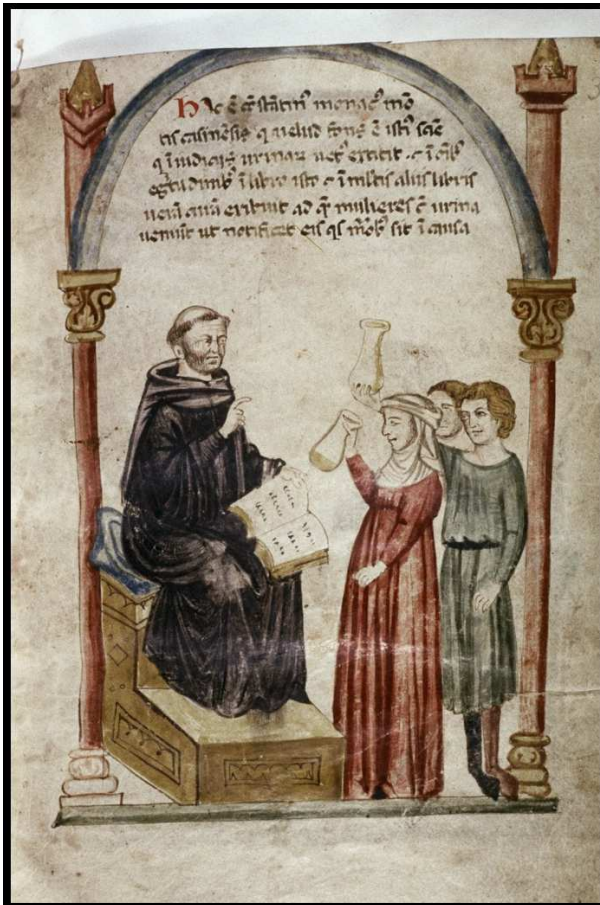 Hic ē cōstātin᷒ monac᷒ mō
tis casinēsis q uelud fons ē isti᷒ sciē
q ī iudiciis urinar uer᷒ extitit ⁊ ī oīb᷒
egitudinib᷒ ī libro isto ⁊ ī mltis aliis libris
uerā curā exibuit ad qē mulieres cū urina
ueniūt ut notificet eis qs morb᷒ sit ī causa